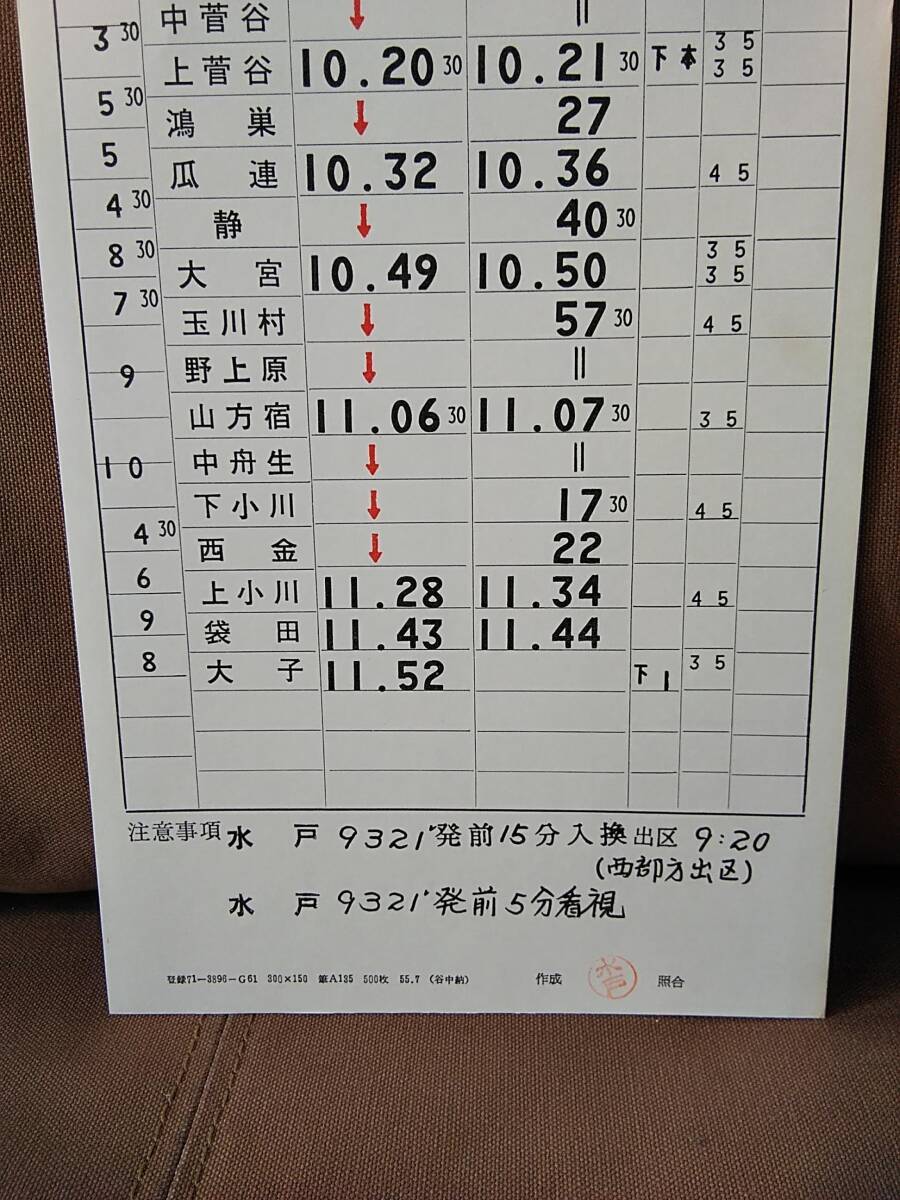 中菅谷 ↓ ||
3 30
3 5
上菅谷 10.20 30 10.21 30 下本 3 5
5 30
鴻巣 ↓ 27
5
瓜連 10.32 10.36 4 5
4 30
静 ↓ 40 30
8 30
3 5
大宮 10.49 10.50 3 5
7 30
玉川村 ↓ 57 30 4 5
野上原 ↓ ||
9
山方宿 11.06 30 11.07 30 3 5
中舟生 ↓ ||
10
下小川 ↓ 17 30 4 5
4 30
西金 ↓ 22
6
上小川 11.28 11.34 4 5
9
袋田 11.43 11.44
8
大子 11.52 下1 3 5
注意事項 水戸 9321'発前15分入換出区 9:20
(西部方出区)
水戸 9321'発前5分看視
登録71-3896-G61 300×150 筆A135 500枚 55.7 (谷中納) 作成 水戸 照合